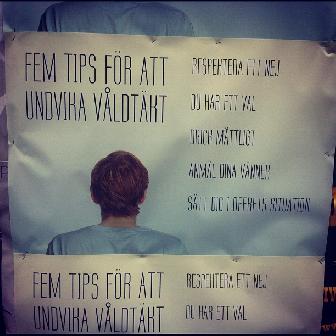 FEM TIPS FÖR ATT
UNDVIKA VÅLDTÄKT
RESPEKTERA ETT NEJ
DU HAR ETT VAL
DRICK MÅTTLIGT
ANMÄL DINA VÄNNER
SÄTT DIG I OFFRETS SITUATION
FEM TIPS FÖR ATT
UNDVIKA VÅLDTÄKT
RESPEKTERA ETT NEJ
DU HAR ETT VAL